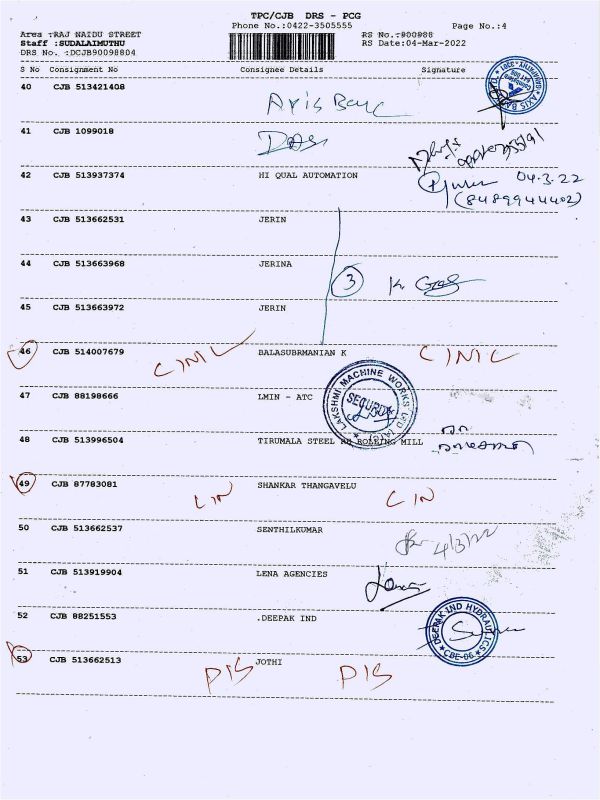 TPC/CJB DRS - PCG
Phone No.:0422-3505555 Page No.:4
Area :RAJ NAIDU STREET RS No.:900988
Staff :SUDALAIMUTHU RS Date:04-Mar-2022
DRS No. :DCJB90098804
S No Consignment No Consignee Details Signature
40 CJB 513421408
Axis Bank
41 CJB 1099018
42 CJB 513937374 HI QUAL AUTOMATION
04.3.22
(8489944402)
43 CJB 513662531 JERIN
44 CJB 513663968 JERINA
3
45 CJB 513663972 JERIN
46 CJB 514007679 BALASUBRMANIAN K
47 CJB 88198666 LMIN - ATC
LAKSHMI MACHINE WORKS LTD
48 CJB 513996504 TIRUMALA STEEL RE ROLEING MILL
49 CJB 87783081 SHANKAR THANGAVELU
50 CJB 513662537 SENTHILKUMAR
4/3/22
51 CJB 513919904 LENA AGENCIES
52 CJB 88251553 .DEEPAK IND
DEEPAK IND HYDRAULICS
CBE-06
53 CJB 513662513 JOTHI